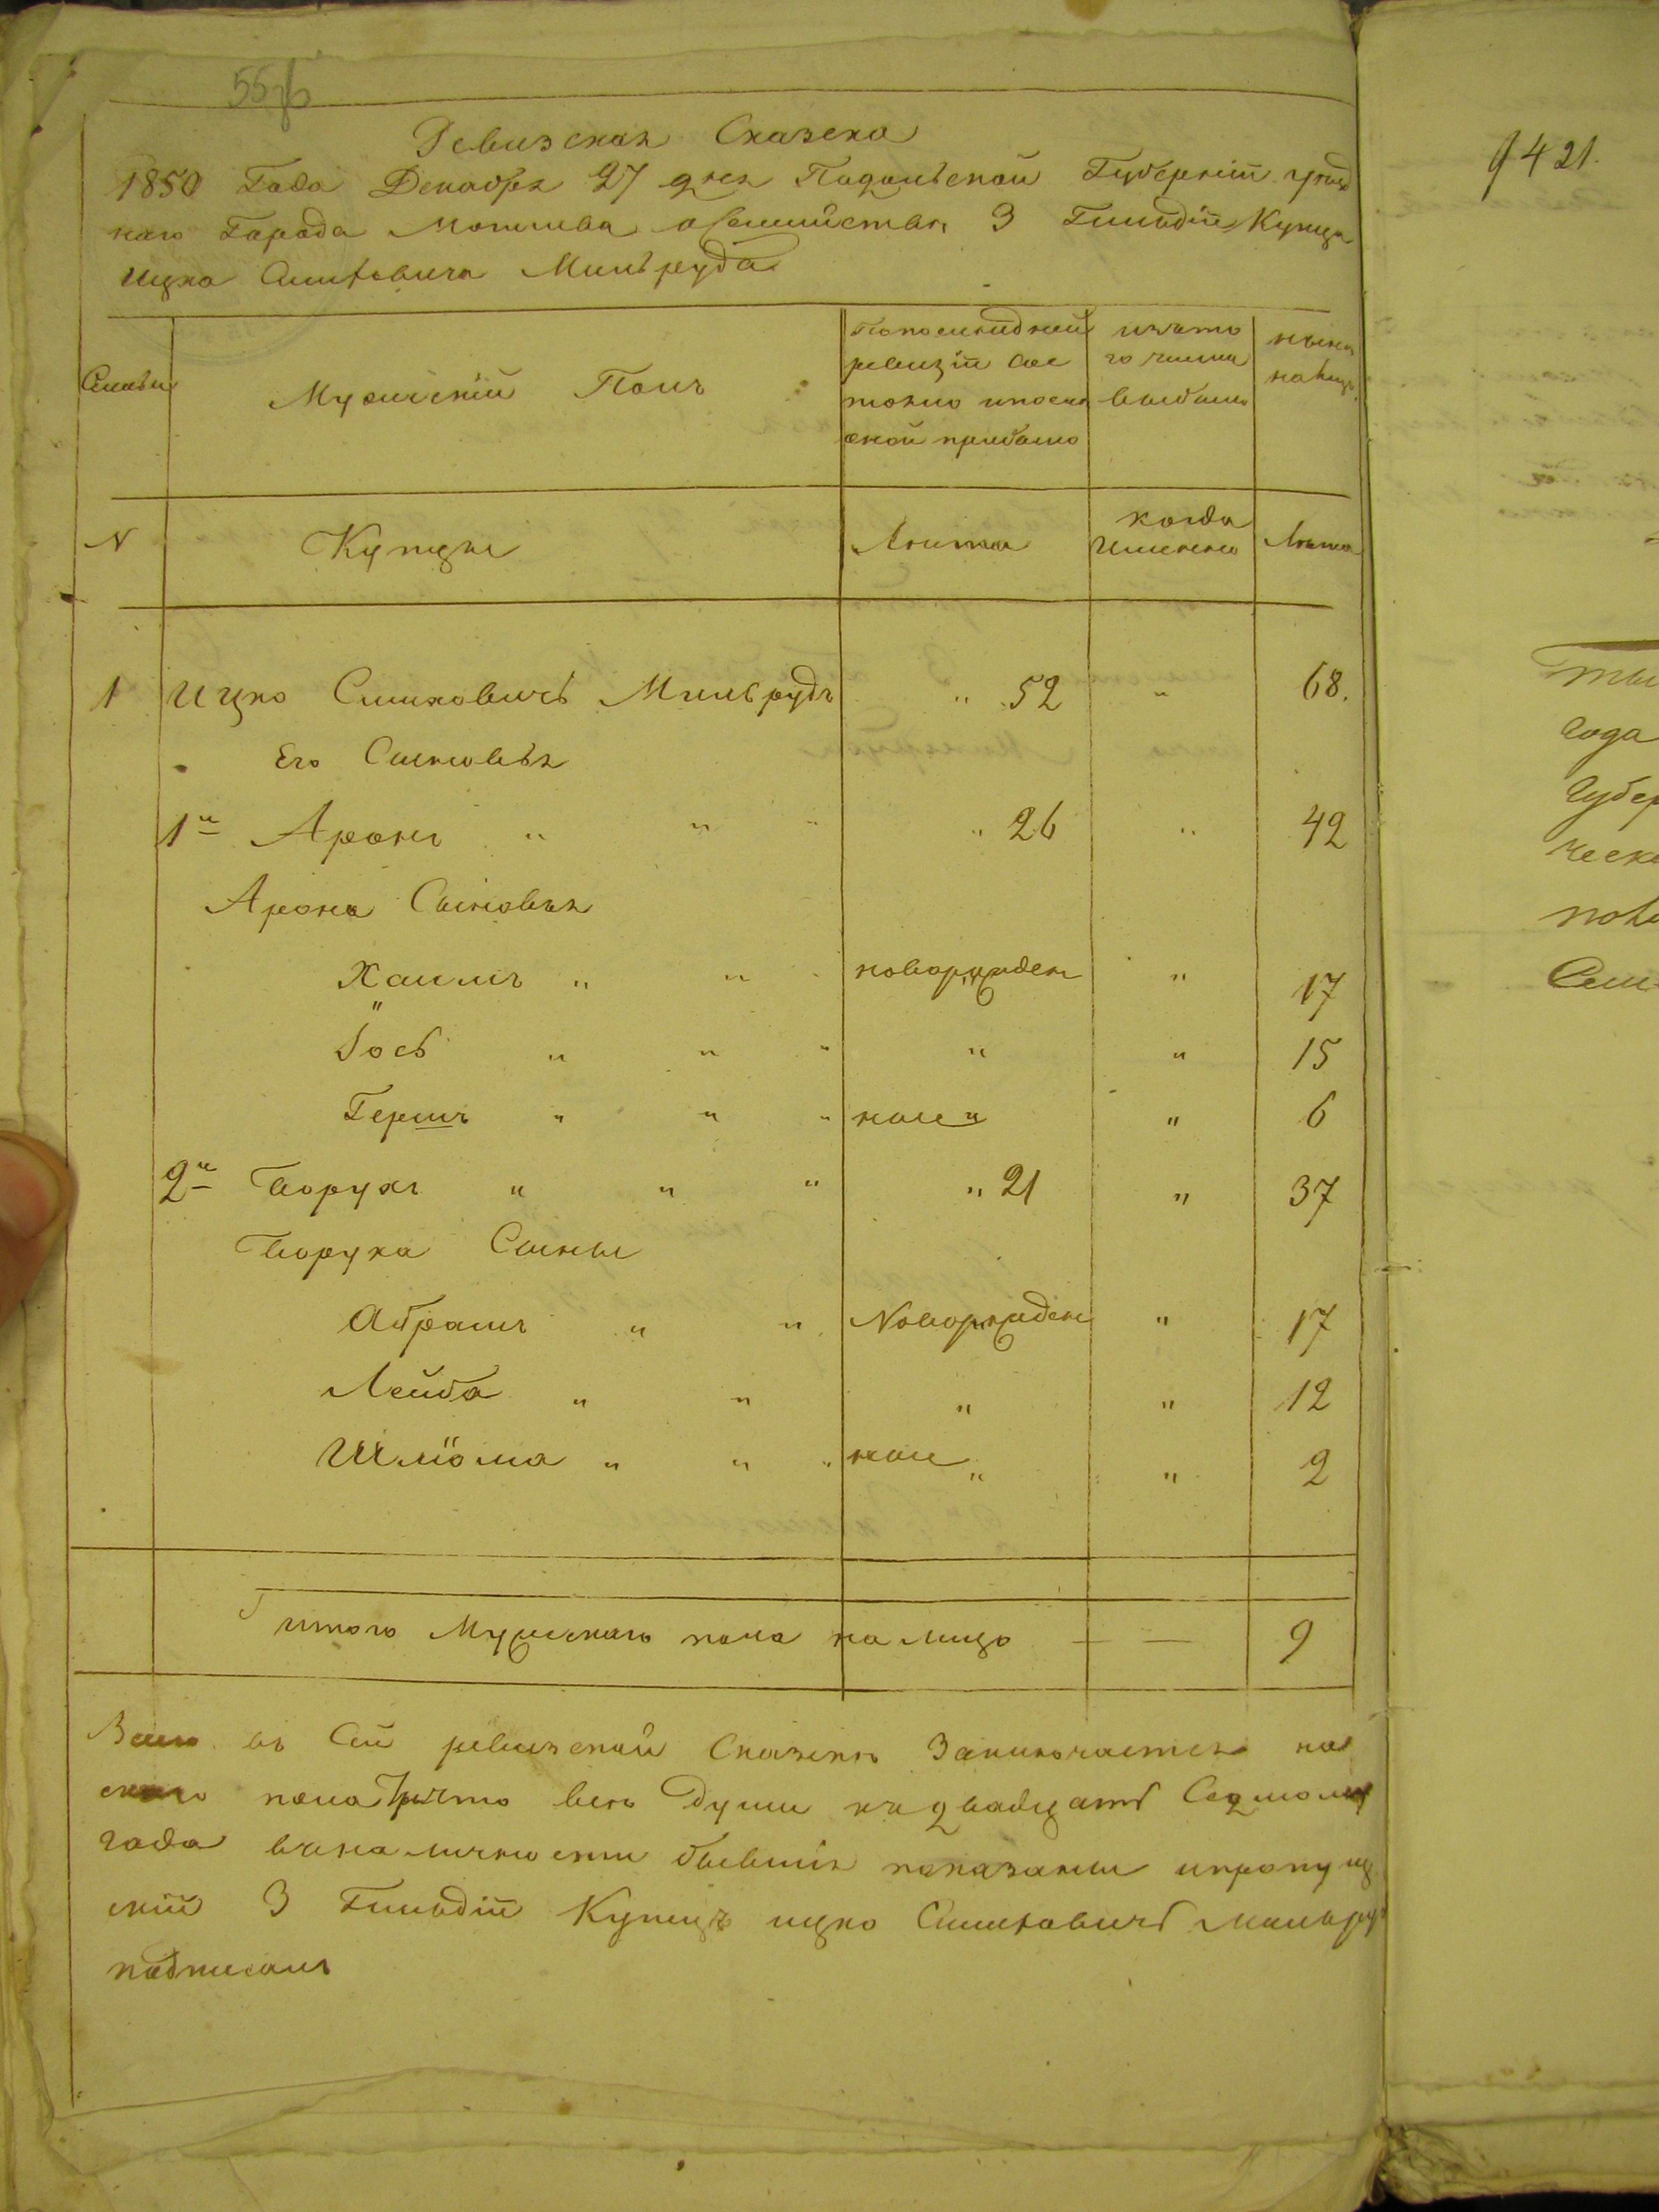 Ревизская Сказска
1850 Года Декабря 27 дня Подольской Губерніи уезд
наго Города Могилева о Семийстве 3 Гильдіи Купца
Ицка Слиховича Мильруда
Семьи
Мужескій Полъ
Попоследней
ревизіи сос
тояло ипосле
оной прибыло
изъто
го числа
выбыло
ныне
налицо
N
Купцы
Лета
когда
Именно
Лета
1 Ицко Слиховичь Мильрудъ " 52 " 68.
Его Сыновья
1й Аронъ " " " " 26 " 42
Арона Сыновья
Хаимъ " " " новорожден " 17
Іось " " " " " 15
Гершъ " " " ноле " " 6
2й Борухъ " " " " 21 " 37
Боруха Сыны
Абрамъ " " Новорожден " 17
Лейба " " " " 12
Шліома " " " ноле " " 2
итого Мужескаго пола на лицо — — 9
въ Сей ревизской Сказке Заключается
пола что все души двадцать Седмом
года бывшія показаны ипропущ
3 Гильдіи Купецъ ицко Слиховичь Мильруд
подписалъ
9421.
года